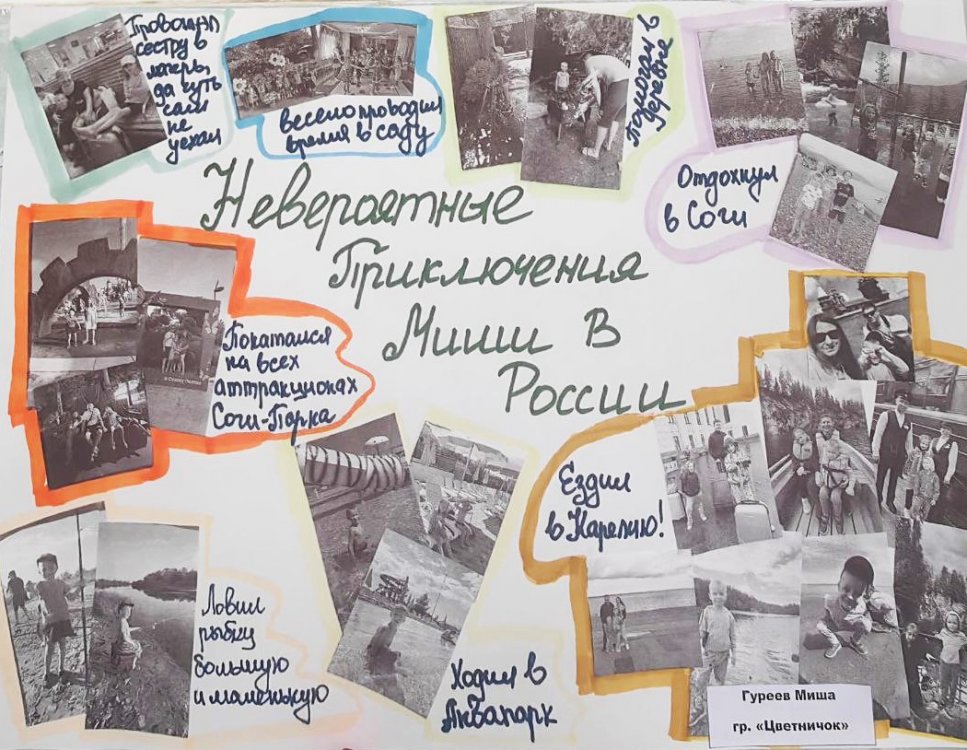 Провожал
сестру в
лагерь,
да чуть
сам
не
уехал
весело проводил
время в саду
Помогал в
деревне
Отдохнул
в Сочи
Невероятные
Приключения
Миши в
России
Покатался
на всех
аттракционах
Сочи-Парка
Ездил
в Карелию!
Ловил
рыбку
большую
и маленькую
Ходил в
Аквапарк
Гуреев Миша
гр. «Цветничок»